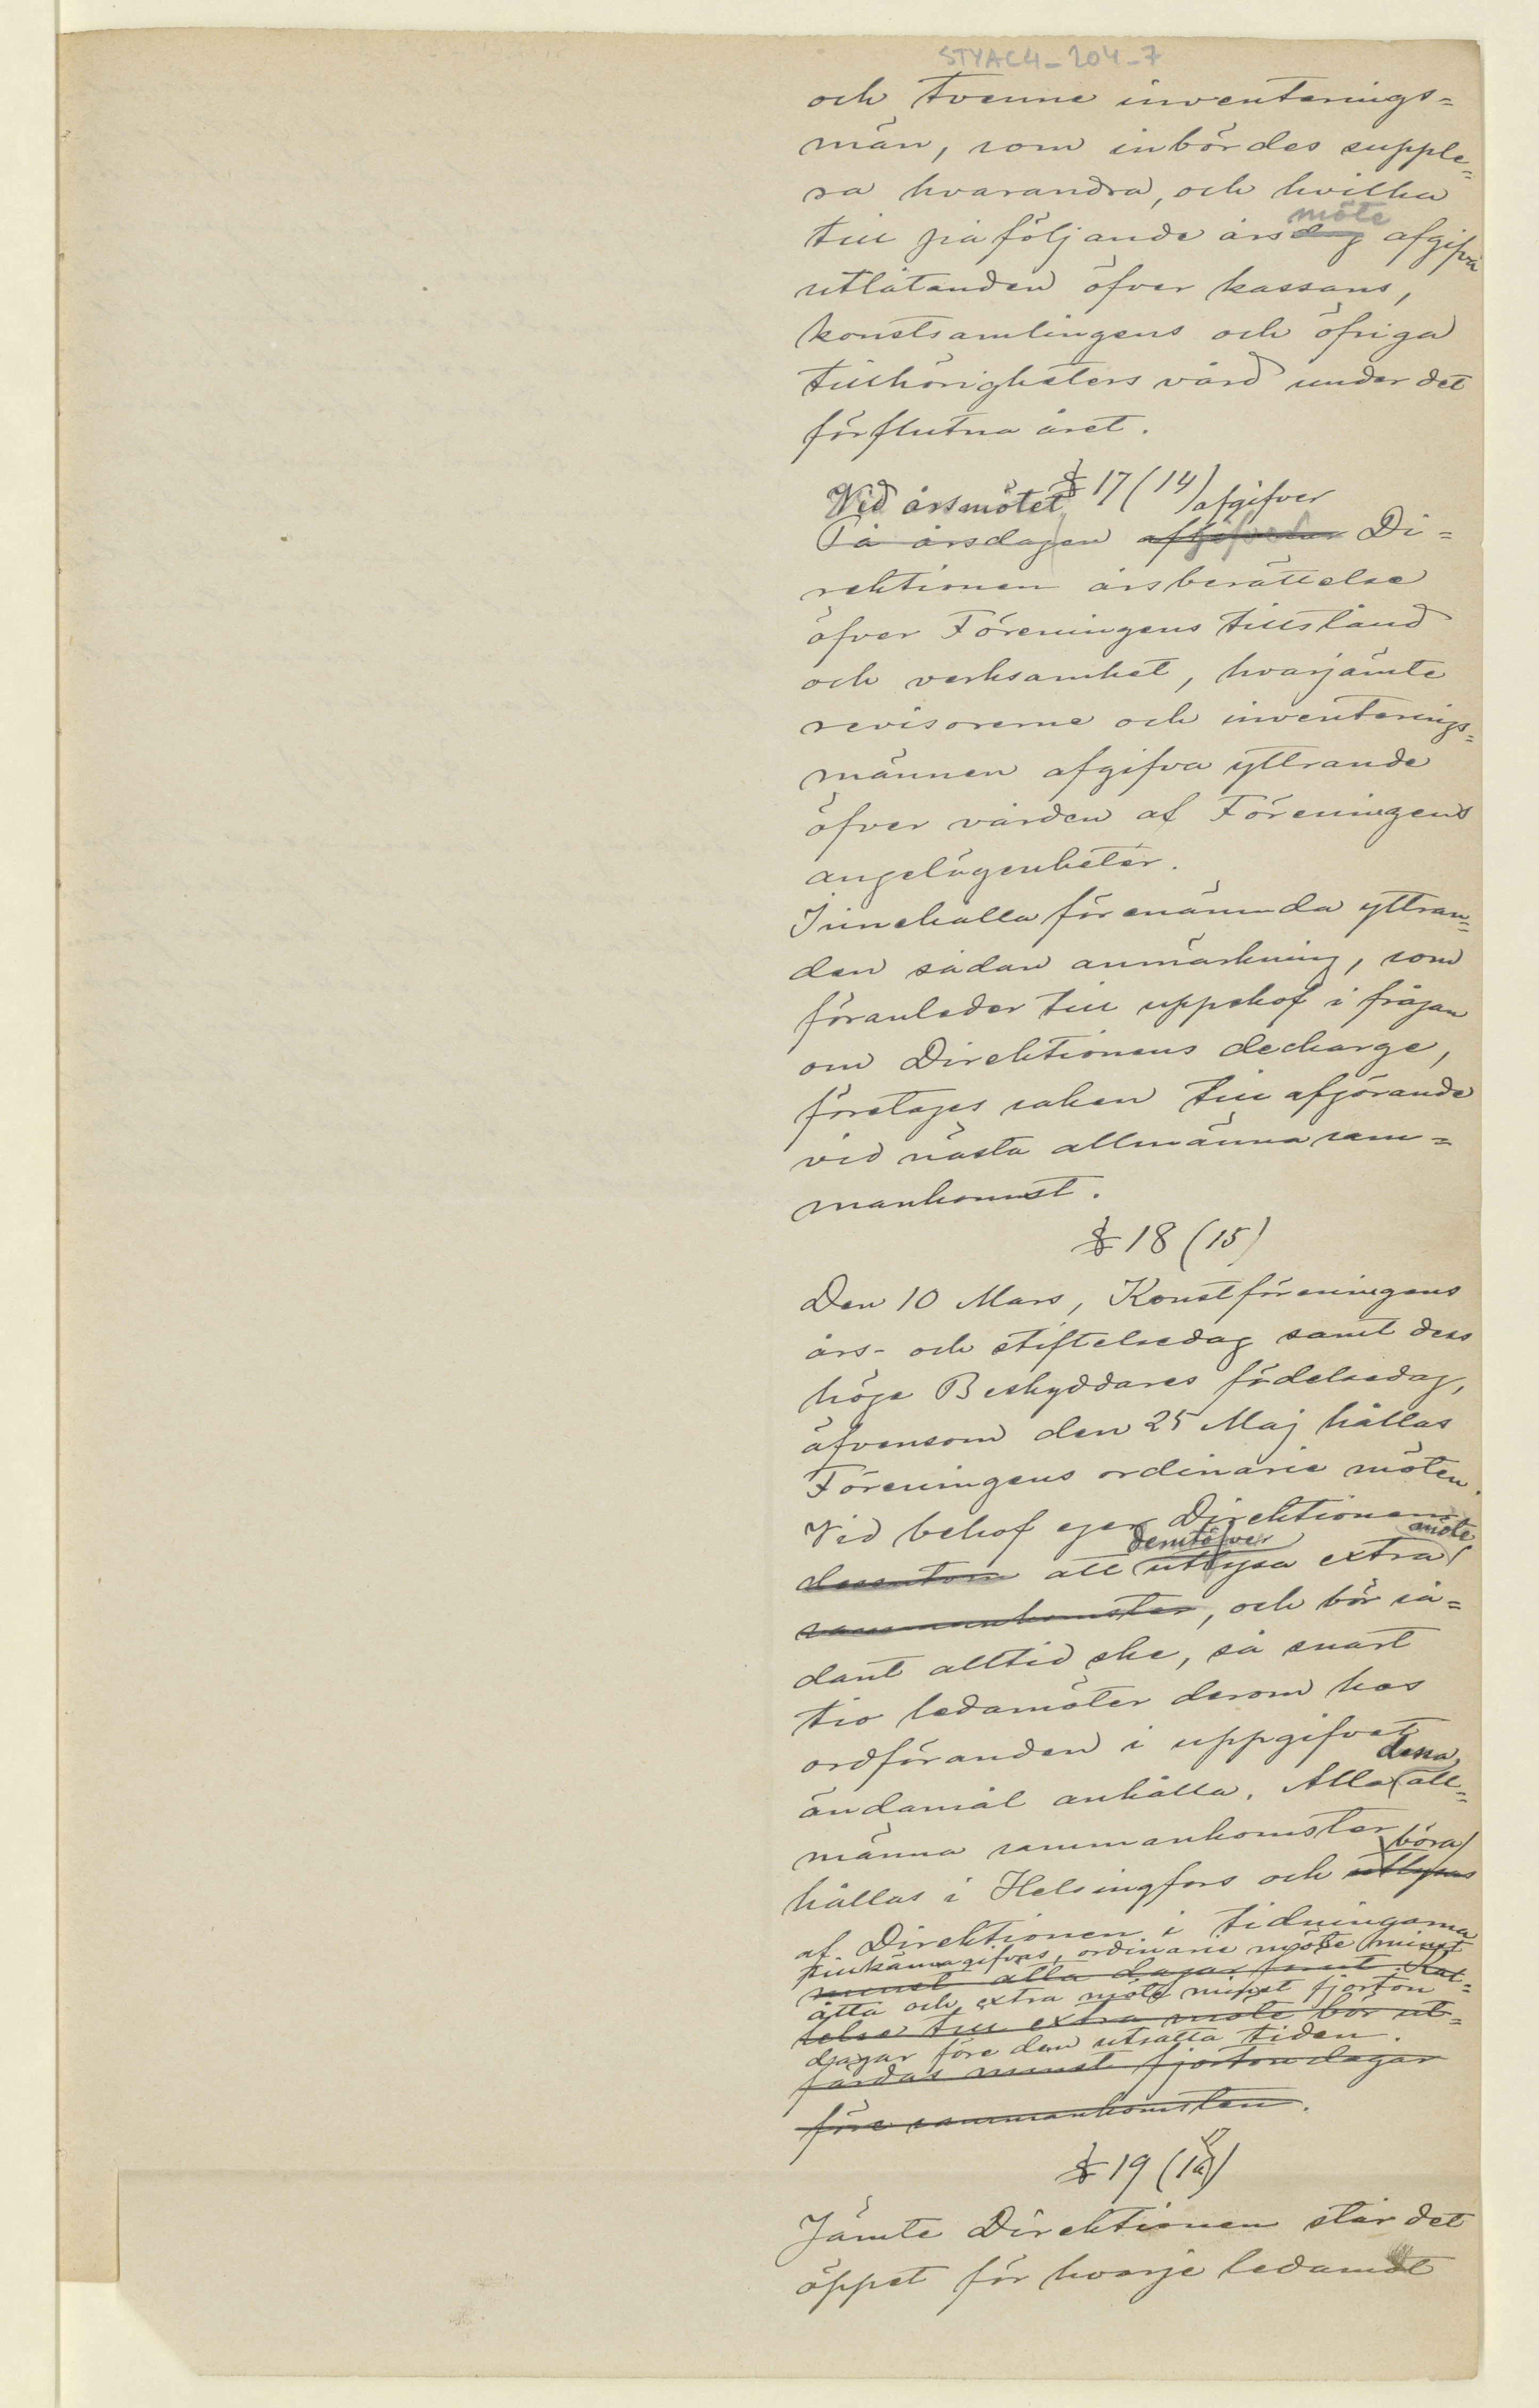 STYAC4-204-7
och tvenne inventerings=
män, som inbördes supple=
ra hvarandra, och hvilka
möte
till påföljande årsdag afgifva
utlåtanden öfver kassans,
konstsamlingens och öfriga
tillhörigheters vård under det
förflutna året.
§ 17 (14)
Vid årsmötet afgifver
På årsdagen Di=
rektionen årsberättelse
öfver Föreningens tillstånd
och verksamhet, hvarjämte
revisorerne och inventerings=
männen afgifva yttrande
öfver vården af Föreningens
angelägenheter.
Innehålla förenämnda yttran=
den sådan anmärkning, som
föranleder till uppskof i frågan
om Direktionens decharge,
företages saken till afgörande
vid nästa allmänna sam=
mankomst.
§ 18 (15)
Den 10 Mars, Konstföreningens
års- och stiftelsedag samt dess
höge Beskyddares födelsedag,
äfvensom den 25 Maj hållas
Föreningens ordinarie möten.
Vid behof eger Direktionen
demtöfver möte
dessutom att utlysa extra
sammankomster, och bör så=
dant alltid ske, så snart
tio ledamöter derom hos
ordföranden i uppgifvet
dessa
ändamål anhålla. Alla all=
männa sammankomster
böra
hållas i Helsingfors och utlysas
af Direktionen i tidningarna
tillkännagifvas, ordinarie möte minst
minst åtta dagar förut. Kal=
åtta och extra möte minst fjorton
lelse till extra möte bör ut=
dagar före den utsatta tiden.
färdas minst fjorton dagar
före sammankomsten.
§ 19 (17)
Jämte Direktionen står det
öppet för hvarje ledamot